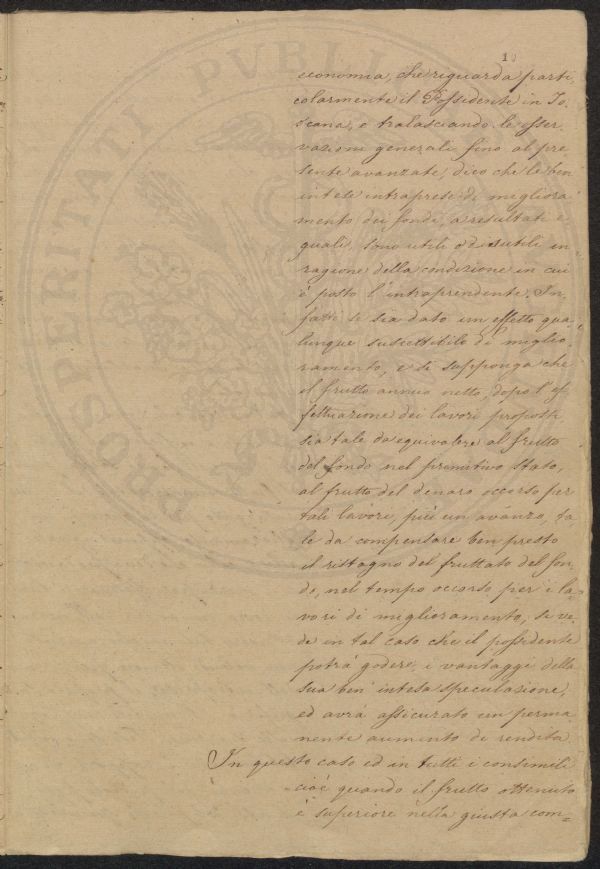 1
economia, che riguarda parti
colarmente il Possidente in To,
scana, e tralasciando le osser
vazioni generali fino al pre
sente avanzate, dico che le ben
intese intraprese di migliora
mento dei fondi, a resultati e
guali, sono utili o disutili in
ragione della condizione in cui
è posto l'intraprendente. In,
fatti si sia dato un effetto qua,
lunque suscettibile di miglio,
ramento, e si supponga che
il frutto annuo netto, dopo l'ef
fettuazione dei lavori proposti
sia tale da equivalere al frutto
del fondo nel primitivo stato,
al frutto del denaro occorso per
tali lavori, più un avanzo, ta
le da compensare ben presto
il ristagno del fruttato del fon,
do, nel tempo occorso per i la=
vori di miglioramento, si ve,
de in tal caso che il possidente
potrà godere i vantaggi della
sua ben' intesa speculazione,
ed avrà assicurato un perma
nente aumento di rendita
In questo caso ed in tutti i consimili
cioè quando il frutto ottenuto
è superiore nella giusta com=
PROSPERITATI PVBLI